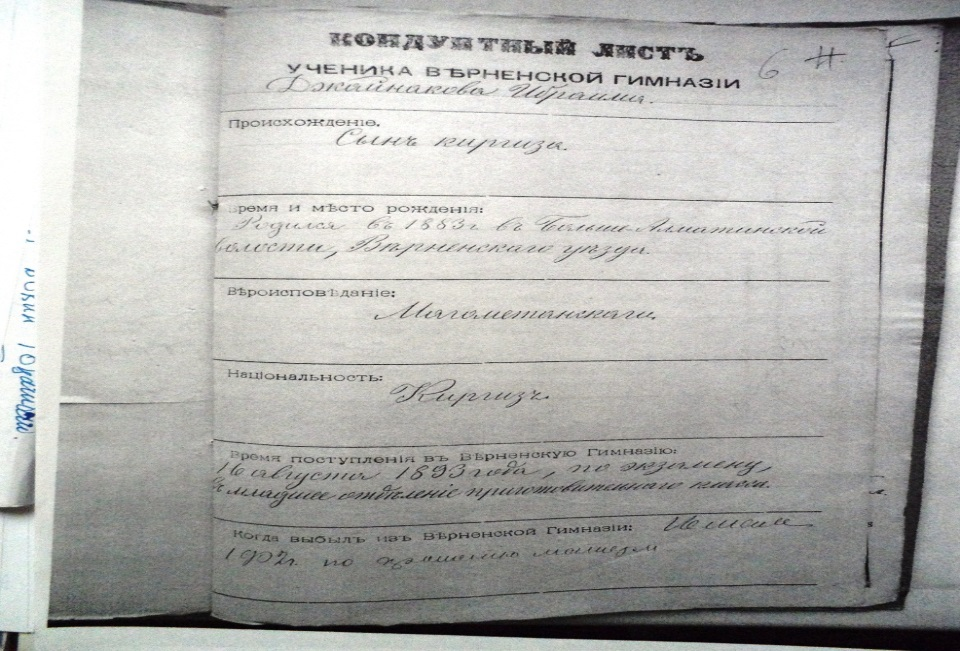 КОНДУИТНЫЙ ЛИСТЪ
6 Н.
УЧЕНИКА ВѢРНЕНСКОЙ ГИМНАЗІИ
Джайнакова Ибраима.
Происхожденіе.
Сынъ киргиза.
Время и мѣсто рожденія:
Родился въ 1883 г. въ Больше-Алматинской
волости, Вѣрненскаго уѣзда.
Вѣроисповѣданіе:
Магометанскаго.
Національность:
Киргизъ.
Время поступленія въ Вѣрненскую Гимназію:
16 августа 1893 года, по экзамену,
въ младшее отдѣленіе приготовительнаго класса.
Когда выбылъ изъ Вѣрненской Гимназіи:
1902 г. по